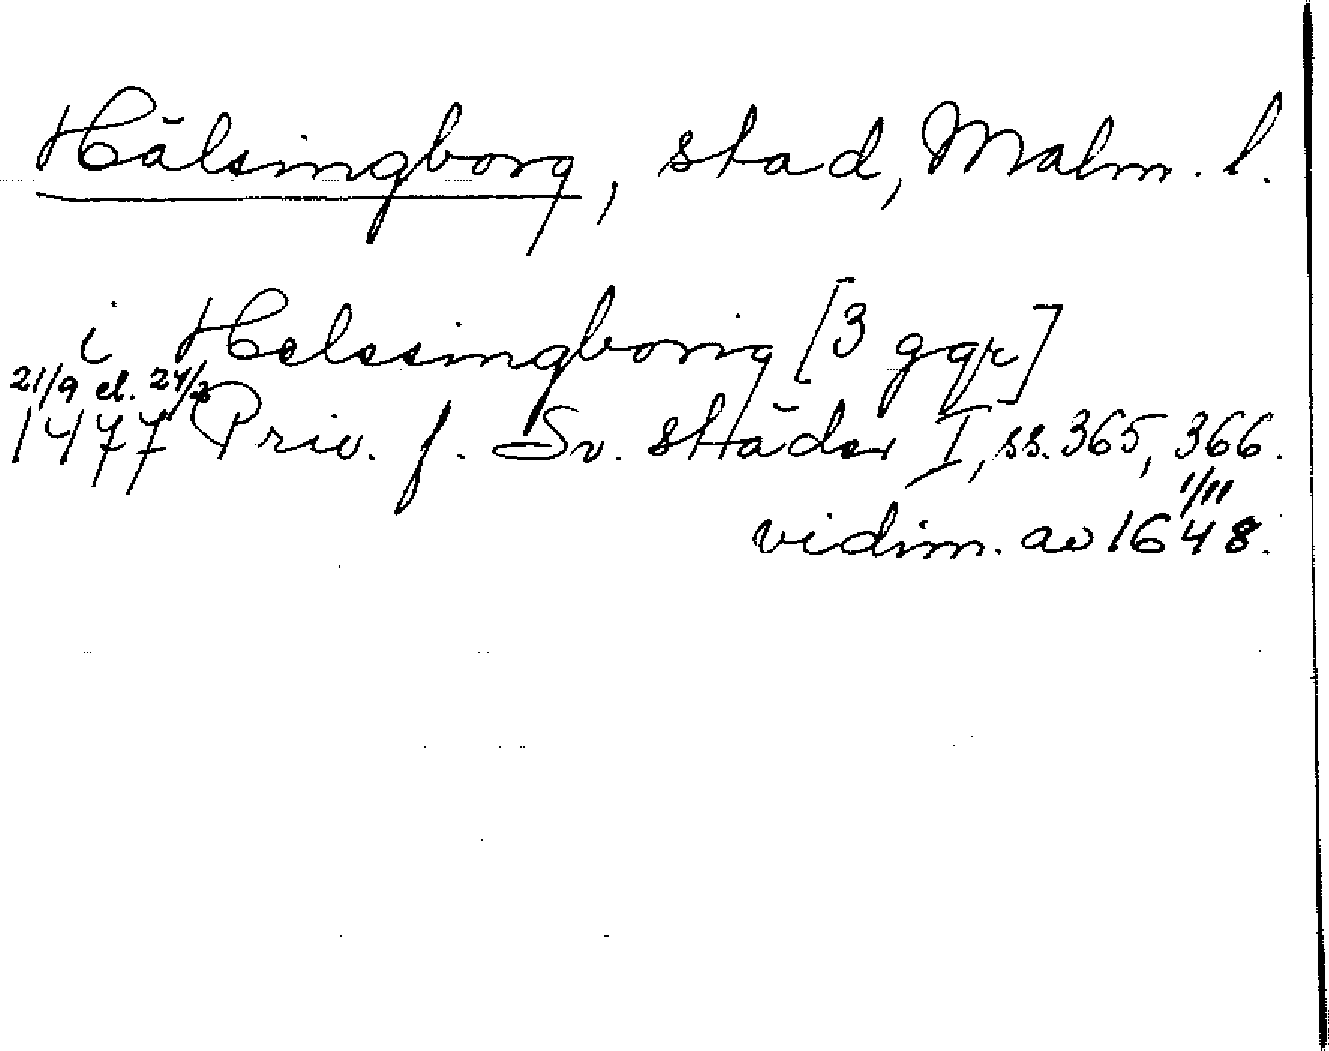 Hälsingborg, stad, Malm. l.
i Helssingborig [3 ggr]
21/9 el. 24/2
1477 Priv. f. Sv. städer I, ss. 365, 366.
1/11
vidim. av 1648.